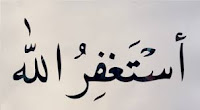 أستَغفِرُ اللّٰه